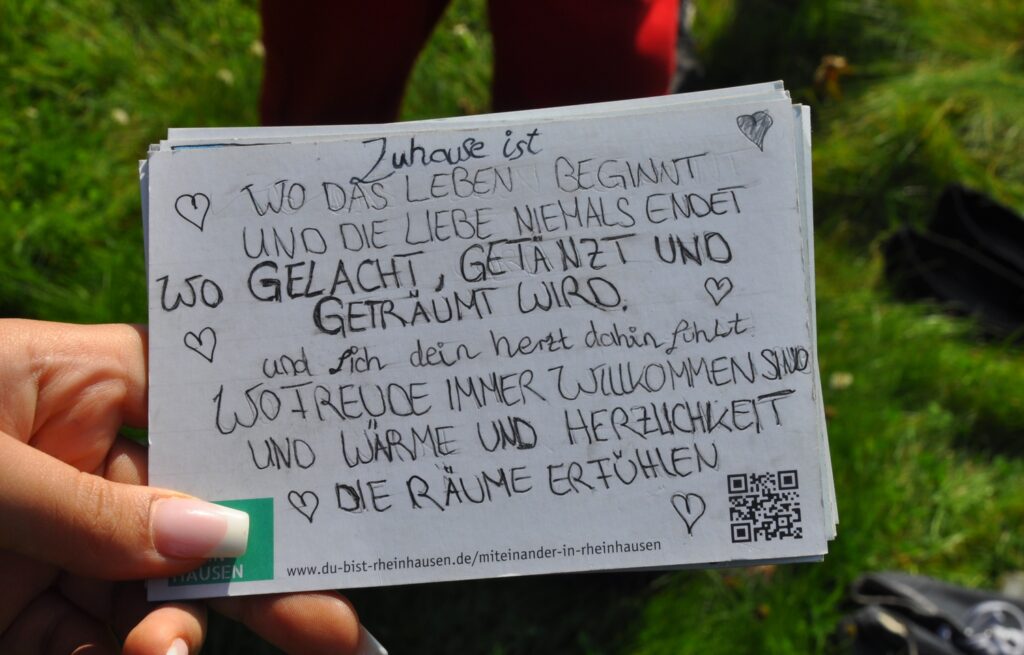 Zuhause ist
WO DAS LEBEN BEGINNT
UND DIE LIEBE NIEMALS ENDET
WO GELACHT, GETÄNZT UND
GETRÄUMT WIRD.
und sich dein herzt dahin fühlt.
WO FREUDE IMMER WILLKOMMEN SIND
UND WÄRME UND HERZLICHKEIT
DIE RÄUME ERFÜHLEN
HAUSEN
www.du-bist-rheinhausen.de/miteinander-in-rheinhausen